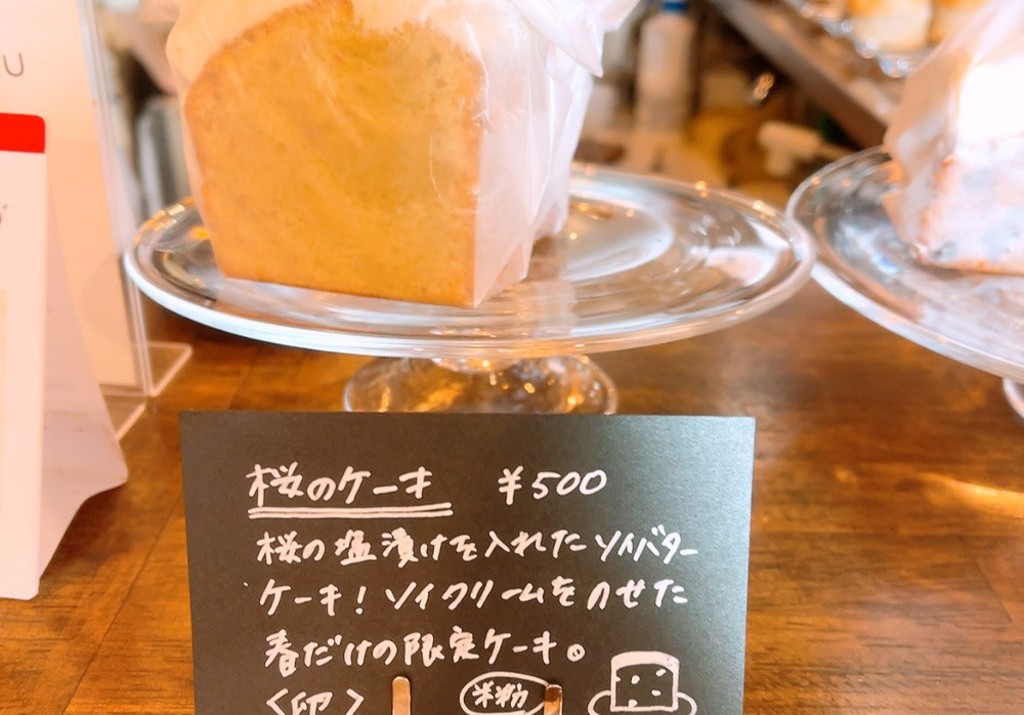 U
桜のケーキ ¥500
桜の塩漬けを入れたソイバター
ケーキ!ソイクリームをのせた
春だけの限定ケーキ。
<卵> 米粉